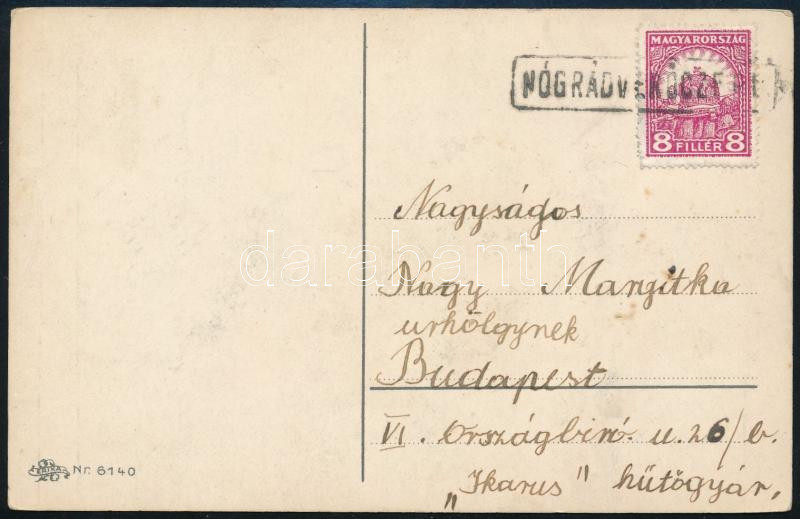 MAGYARORSZÁG
8 FILLÉR 8
Nagyságos
Nagy Margitka
urhölgynek
Budapest
VI. Országbiró u. 26/b.
„Ikarus" hűtőgyár,
ERIKA Nr. 6140
darabanth